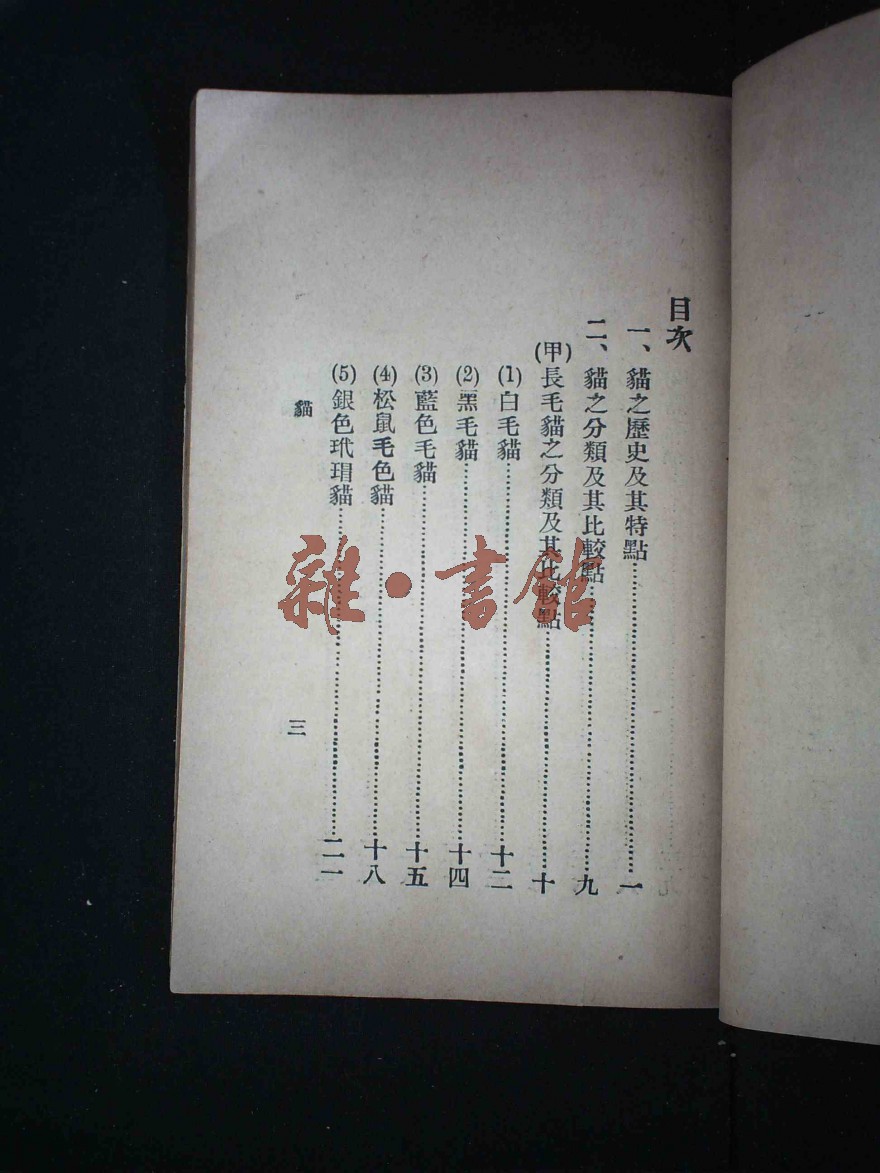 目次
一、貓之歷史及其特點……………………一
二、貓之分類及其比較點……………………九
(甲)長毛貓之分類及其比較點……………………十
(1)白毛貓……………………十二
(2)黑毛貓……………………十四
(3)藍色毛貓……………………十五
(4)松鼠毛色貓……………………十八
(5)銀色玳瑁貓……………………二一
貓
三
雜·書館